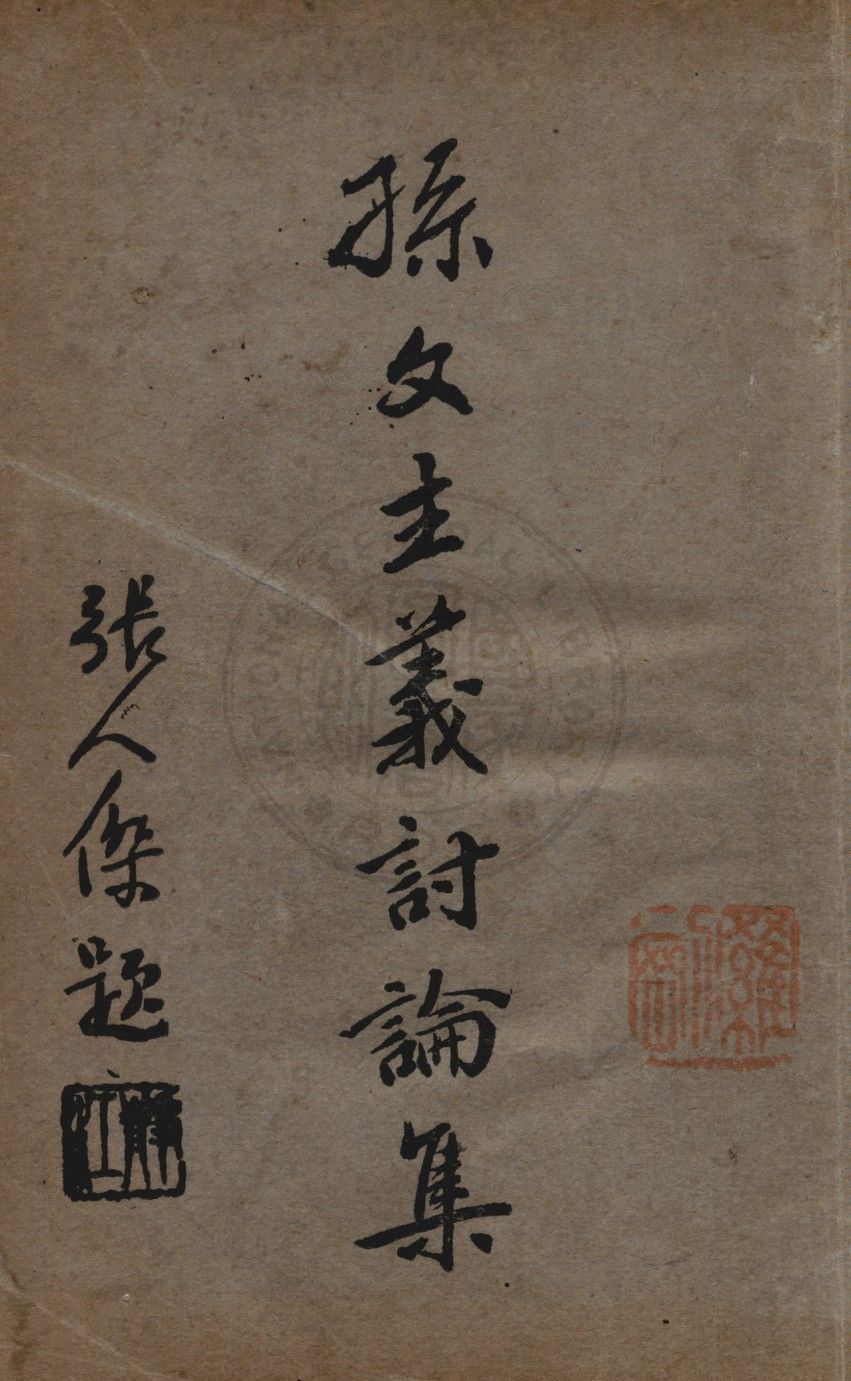 孫文主義討論集
張人傑題